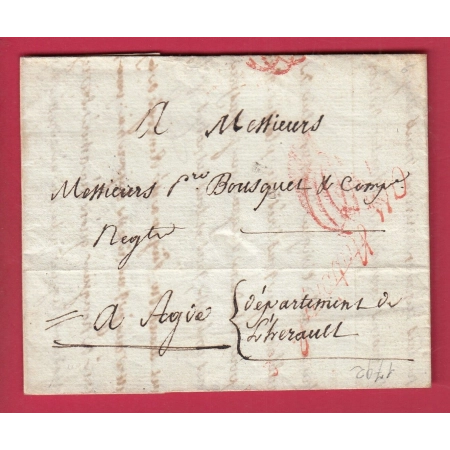 A Messieurs
Messieurs pre Bousquet & Comp.
Negts
A Agde { département de
L'herault
1792